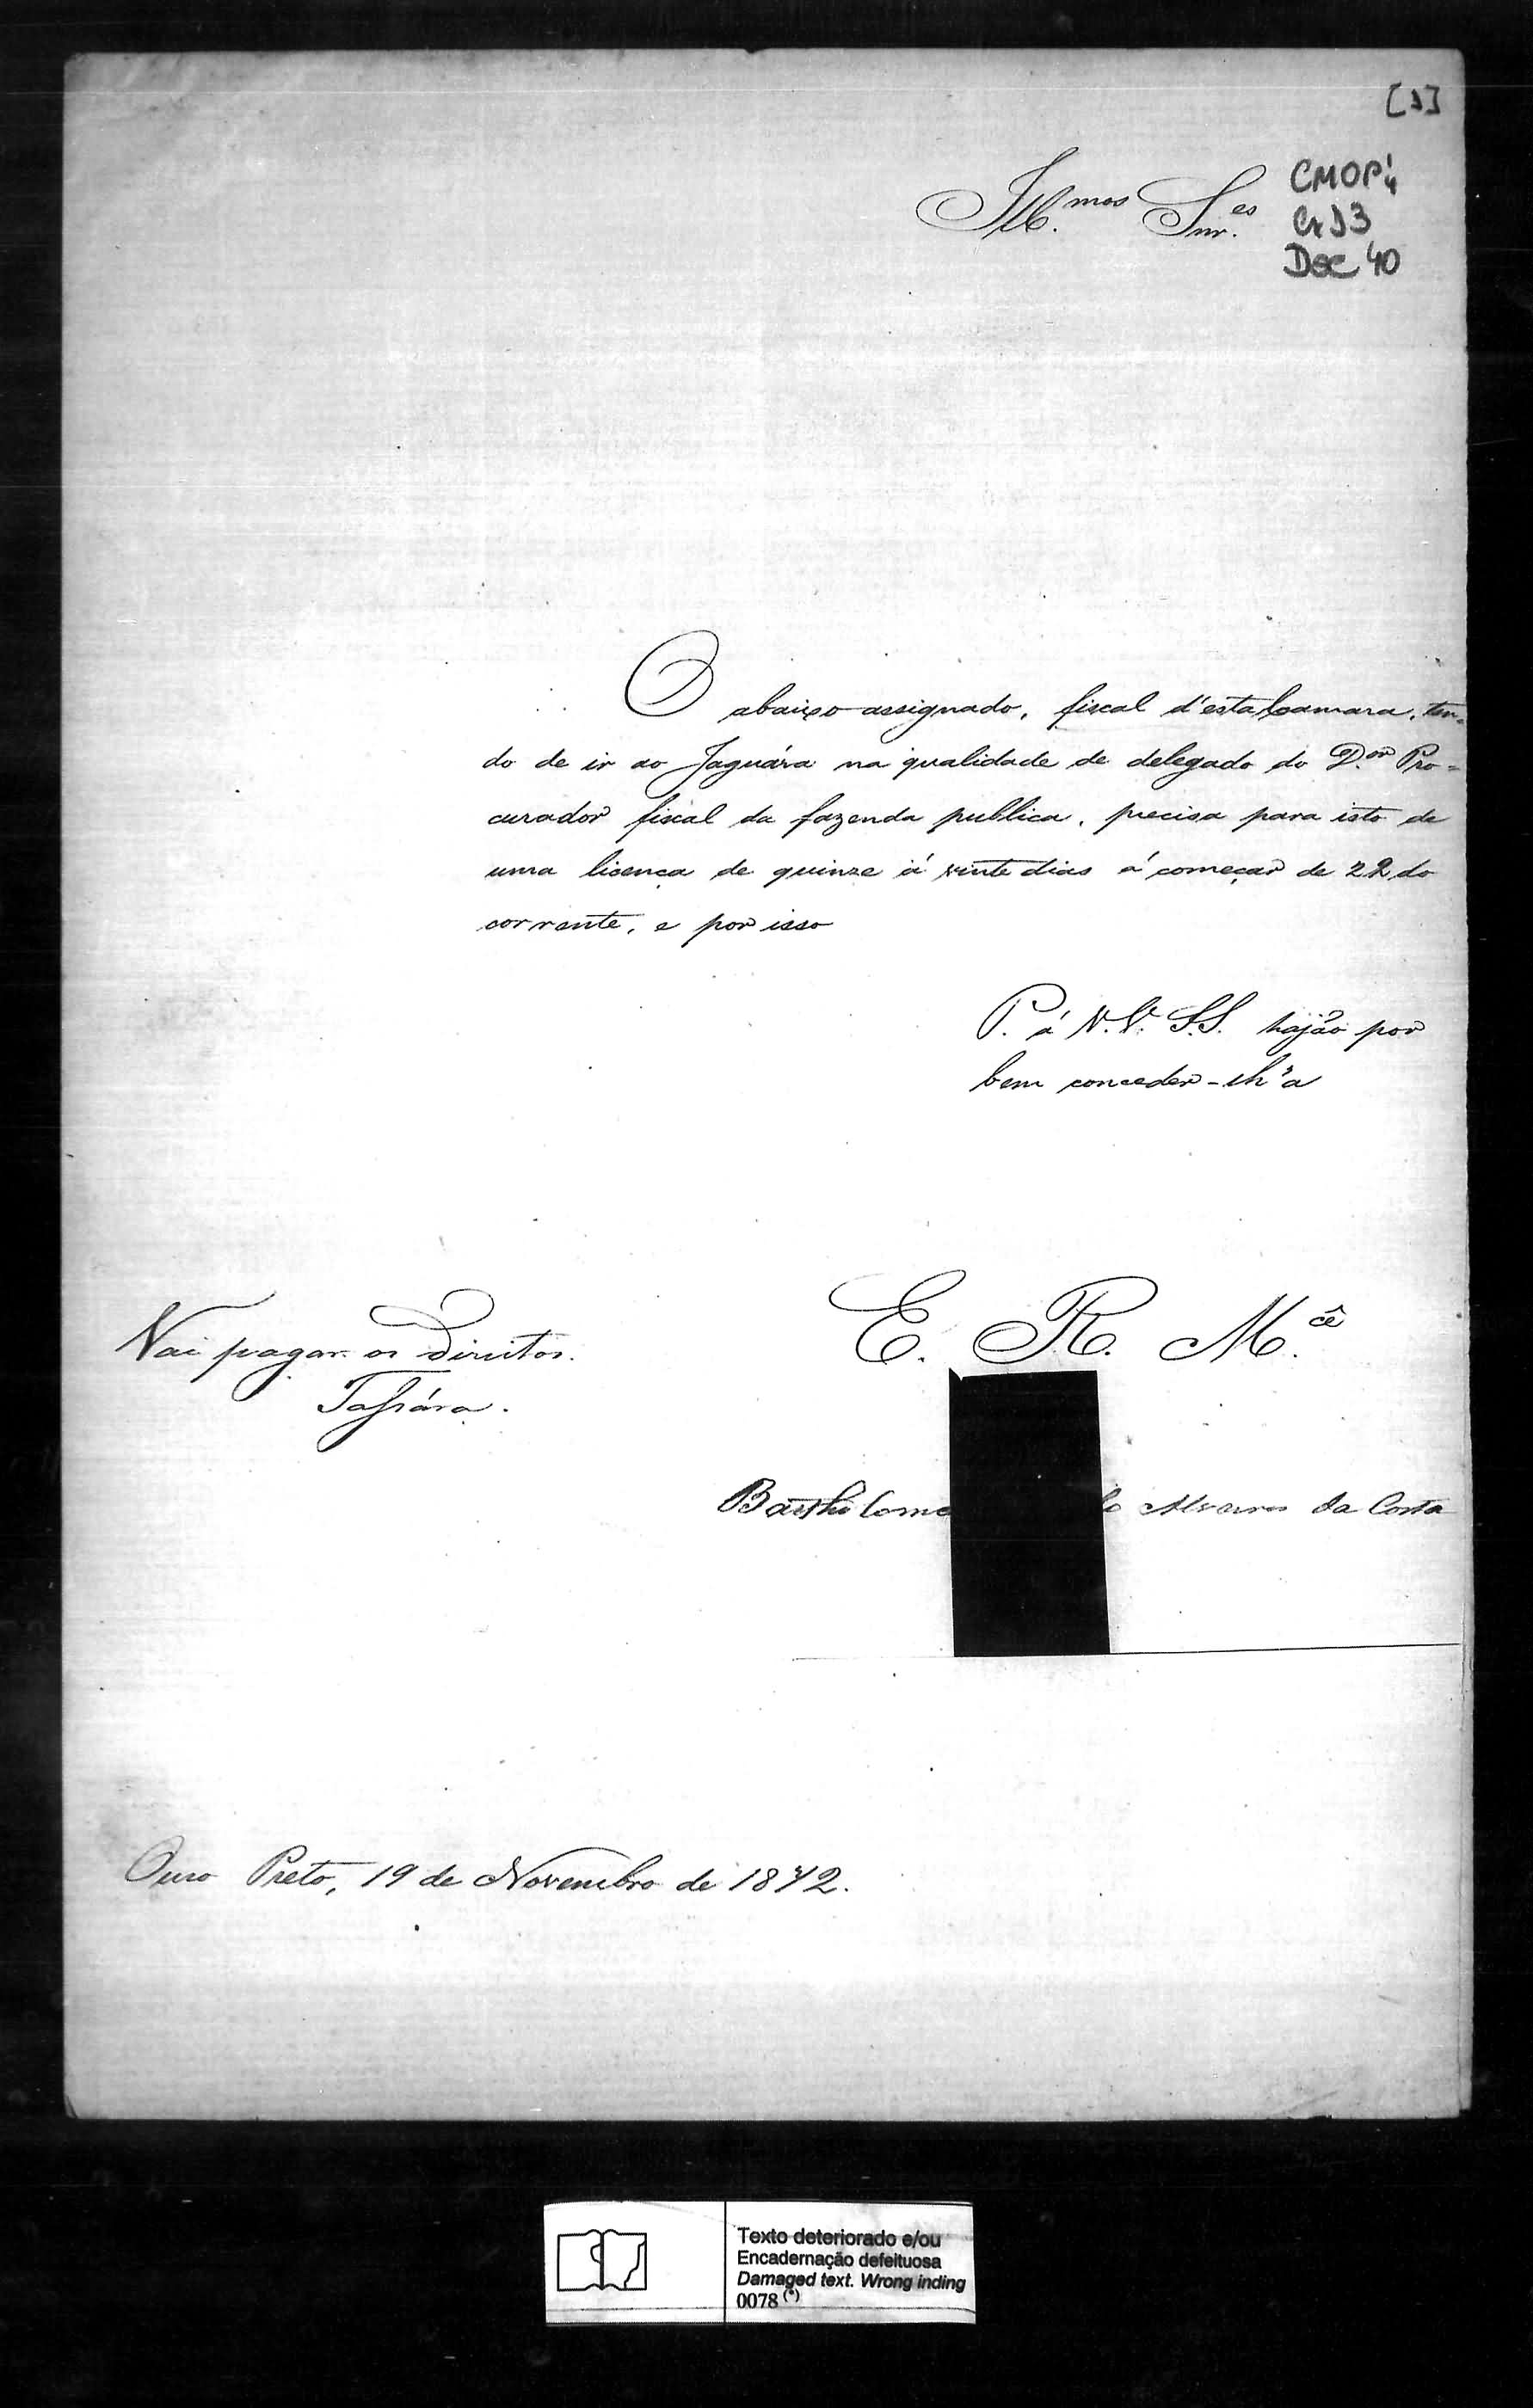 [1]
CMOP 4
Cx 13
Doc 40
Ill.mos Snr.es
O abaixo assignado, fiscal d'esta Camara, ten-
do de ir ao Jaguára na qualidade de delegado do D.or Pro-
curador fiscal da fazenda publica, precisa para isto de
uma licença de quinze á vinte dias á começar de 22 do
corrente, e por isso
P. á V.V. S.S. hajão por
bem conceder-lh'a
E. R. M.cê
Vai pagar os Direitos.
Bartholome lo Alvares da Costa
Ouro Preto, 19 de Novembro de 1872.
Texto deteriorado e/ou
Encadernação defeituosa
Damaged text. Wrong inding
0078 (*)